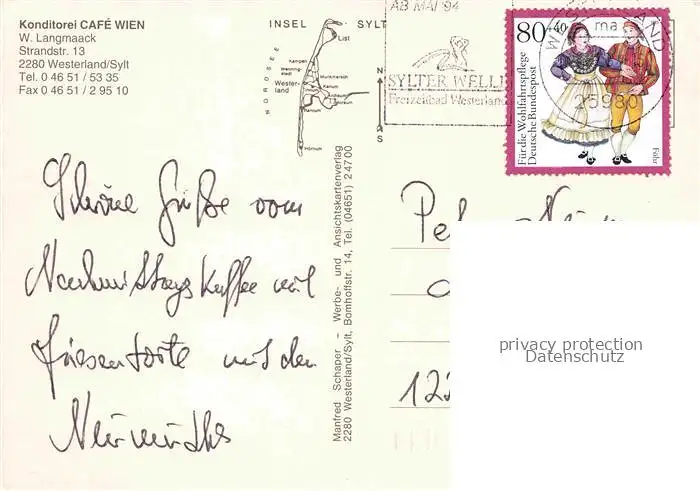 Konditorei CAFÉ WIEN
W. Langmaack
Strandstr. 13
2280 Westerland/Sylt
Tel. 0 46 51 / 53 35
Fax 0 46 51 / 2 95 10
INSEL SYLT
NORDSEE
List
Kampen
Wenning-
stedt
Wester-
land
Munkmarsch
Keitum
Archsum
Morsum
Rantum
Hörnum
N
S
AB MAI '94
SYLTER WELLE
Freizeitbad Westerland
25980
80+40
Für die Wohlfahrtspflege
Deutsche Bundespost
Föhr
Schöne Grüße vom
Nachmittagskaffee mit
Friesentorte und den
Manfred Schaper – Werbe- und Ansichtskartenverlag
2280 Westerland/Sylt, Bomhoffstr. 14, Tel. (04651) 24700
12
privacy protection
Datenschutz